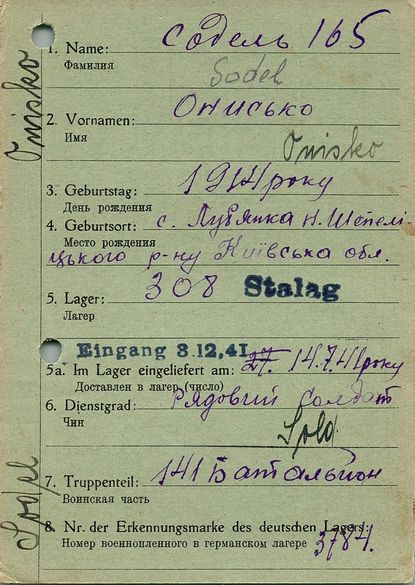 1. Name: Содель 165
Фамилия
Sodel
2. Vornamen: Онисько
Имя
Onisko
3. Geburtstag: 1914 року
День рождения
4. Geburtsort: с. Лубянка Н. Шепелі
Место рождения
цького р-ну Київська обл.
308 Stalag
5. Lager:
Лагер
Eingang 3.12.41.
5a. Im Lager eingeliefert am: 27. 14.7.41 року
Доставлен в лагер (число)
6. Dienstgrad: Рядовий солдат
Чин
Sold
7. Truppenteil: 141 Батальйон
Воинская часть
8. Nr. der Erkennungsmarke des deutschen Lagers:
Номер военнопленного в германском лагере 3784.
Onisko
Sodel